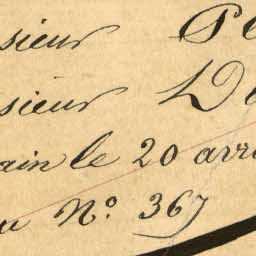 sieur Pe
sieur De
ain le 20 arr
u Nº 367